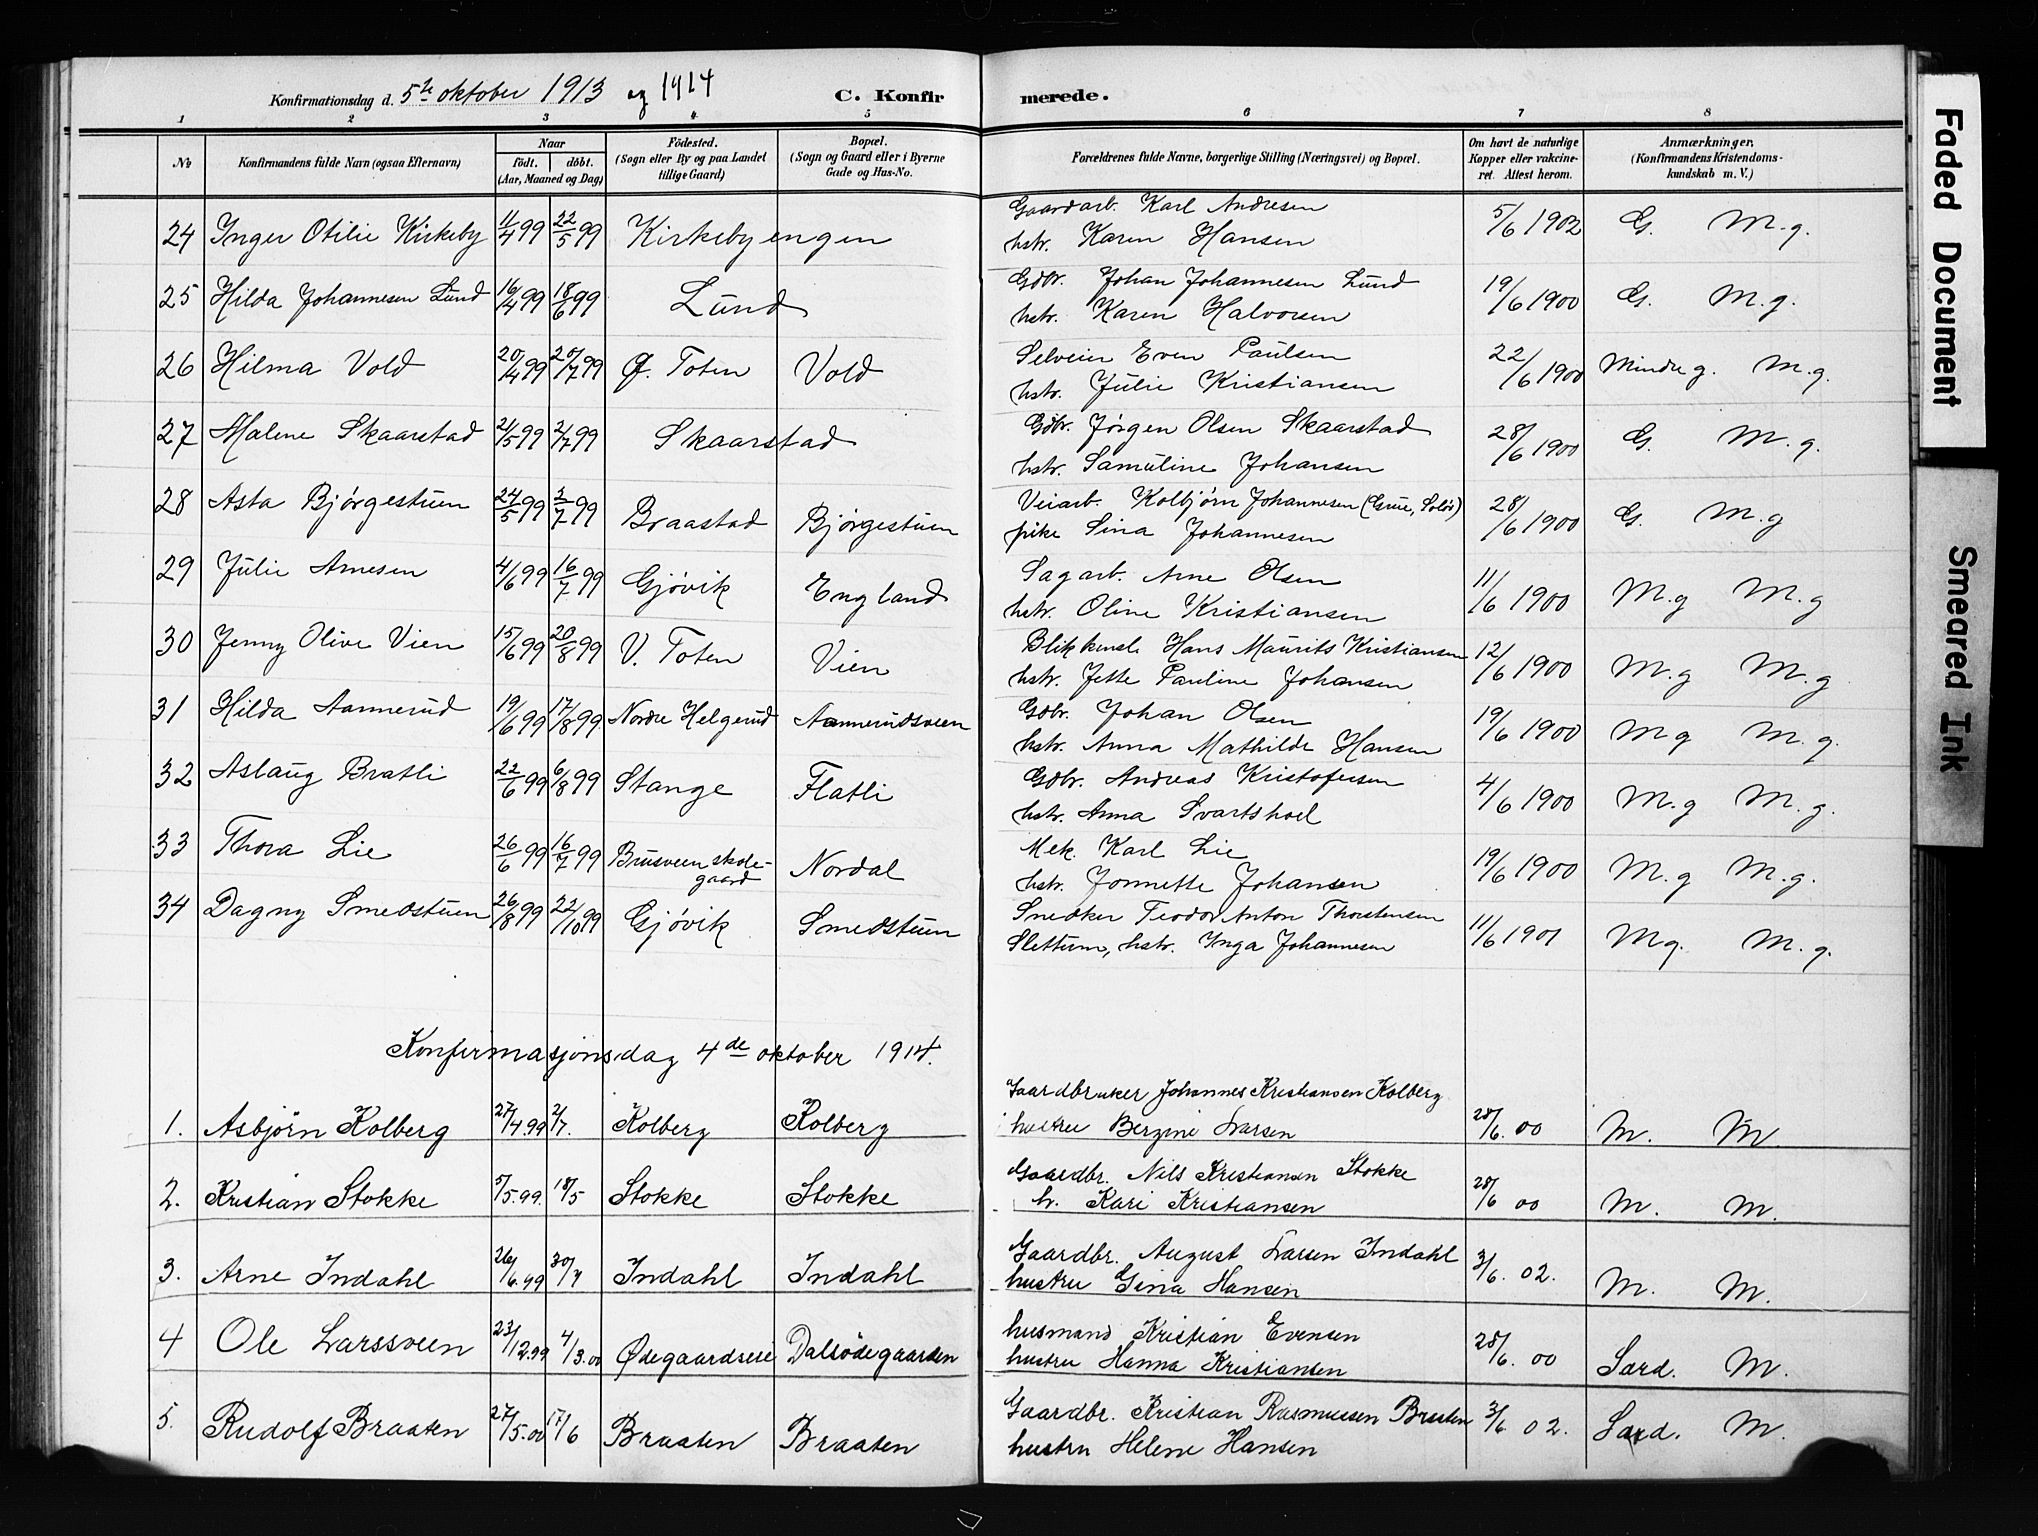 Konfirmationsdag d. 5te oktober 1913 og 1914 C. Konfir merede.
1 2 3 4. 5 6 7 8
No Konfirmandens fulde Navn (ogsaa Efternavn) Naar födt. döbt. (Aar, Maaned og Dag) Födested. (Sogn eller By og paa Landet tillige Gaard) Bopæl. (Sogn og Gaard eller i Byerne Gade og Hus-No. Forældrenes fulde Navne, borgerlige Stilling (Næringsvei) og Bopæl. Om havt de naturlige Kopper eller vakcineret. Attest herom. Anmærkninger, (Konfirmandens Kristendomskundskab m. V.)
24 Inger Otilie Kirkeby 11/4 99 22/5 99 Kirkebyengen Gaardarb. Karl Andresen
hstr. Karen Hansen 5/6 1902 G. M.g.
25 Hilda Johannesen Lund 16/4 99 18/6 99 Lund Gdbr. Johan Johannesen Lund
hstr. Karen Halvorsen 19/6 1900 G. M.g.
26 Hilma Vold 20/4 99 20/7 99 Ø. Toten Vold Selveier Even Paulsen
hstr. Julie Kristiansen 22/6 1900 Mindre g. M.g.
27 Malene Skaarstad 24/5 99 2/7 99 Skaarstad Gdbr. Jørgen Olsen Skaarstad
hstr. Samuline Johansen 28/6 1900 G. M.g.
28 Asta Bjørgestuen 24/5 99 2/7 99 Braastad Bjørgestuen Veiarb. Kolbjørn Johannesen (Grue, Solør)
pike Sina Johannesen 28/6 1900 G. M.g
29 Julie Arnesen 4/6 99 16/7 99 Gjøvik England Sagarb. Arne Olsen
hstr. Oline Kristiansen 11/6 1900 M.g M.g
30 Jenny Olive Vien 15/6 99 20/8 99 V. Toten Vien Blikkensl. Hans Maurits Kristiansen
hstr. Jette Pauline Johansen 12/6 1900 M.g M.g
31 Hilda Aannerud 19/6 99 17/8 99 Nordre Helgerud Aannerudsveen Gdbr. Johan Olsen
hstr. Anna Mathilde Hansen 19/6 1900 M g M.g.
32 Aslaug Bratli 22/6 99 6/8 99 Stange Flatli Gdbr. Andreas Kristofersen
hstr. Anna Svartshoel 4/6 1900 M.g M.g.
33 Thora Lie 26/6 99 16/7 99 Brusveen skole-
gaard Nordal Mek. Karl Lie
hstr. Jonnette Johansen 19/6 1900 M.g M.g.
34 Dagny Smedstuen 26/8 99 22/10 99 Gjøvik Smedstuen Snedker Teodor Anton Thorstensen
Slettum, hstr. Inga Johannesen 11/6 1901 Mg. M.g.
Konfirmasjonsdag 4de oktober 1914.
1. Asbjörn Kolberg 27/4.99 2/7. Kolberg Kolberg Gaardbruker Johannes Kristiansen Kolberg
hustru Bergine Larsen 28/6. 00 M. M
2. Kristian Stokke 5/5.99. 18/5 Stokke Stokke Gaardbr. Nils Kristiansen Stokke
h. Kari Kristiansen 28/6 00 M. M.
3. Arne Indahl 26/6.99 30/7 Indahl Indahl Gaardbr. August Larsen Indahl
hustru Gina Hansen 3/6. 02. M. M.
4 Ole Larssveen 23/12.99 4/3.00 Ødegaardseie Dalsödegaarden husmand Kristian Evensen
hustru Hanna Kristiansen 28/6. 00 Særd. M.
5. Rudolf Braaten 27/5.00 17/6 Braaten Braaten Gaardbr. Kristian Rasmussen Braaten
hustru Helene Hansen 3/6. 02. Særd. M.
Faded Document
Smeared Ink